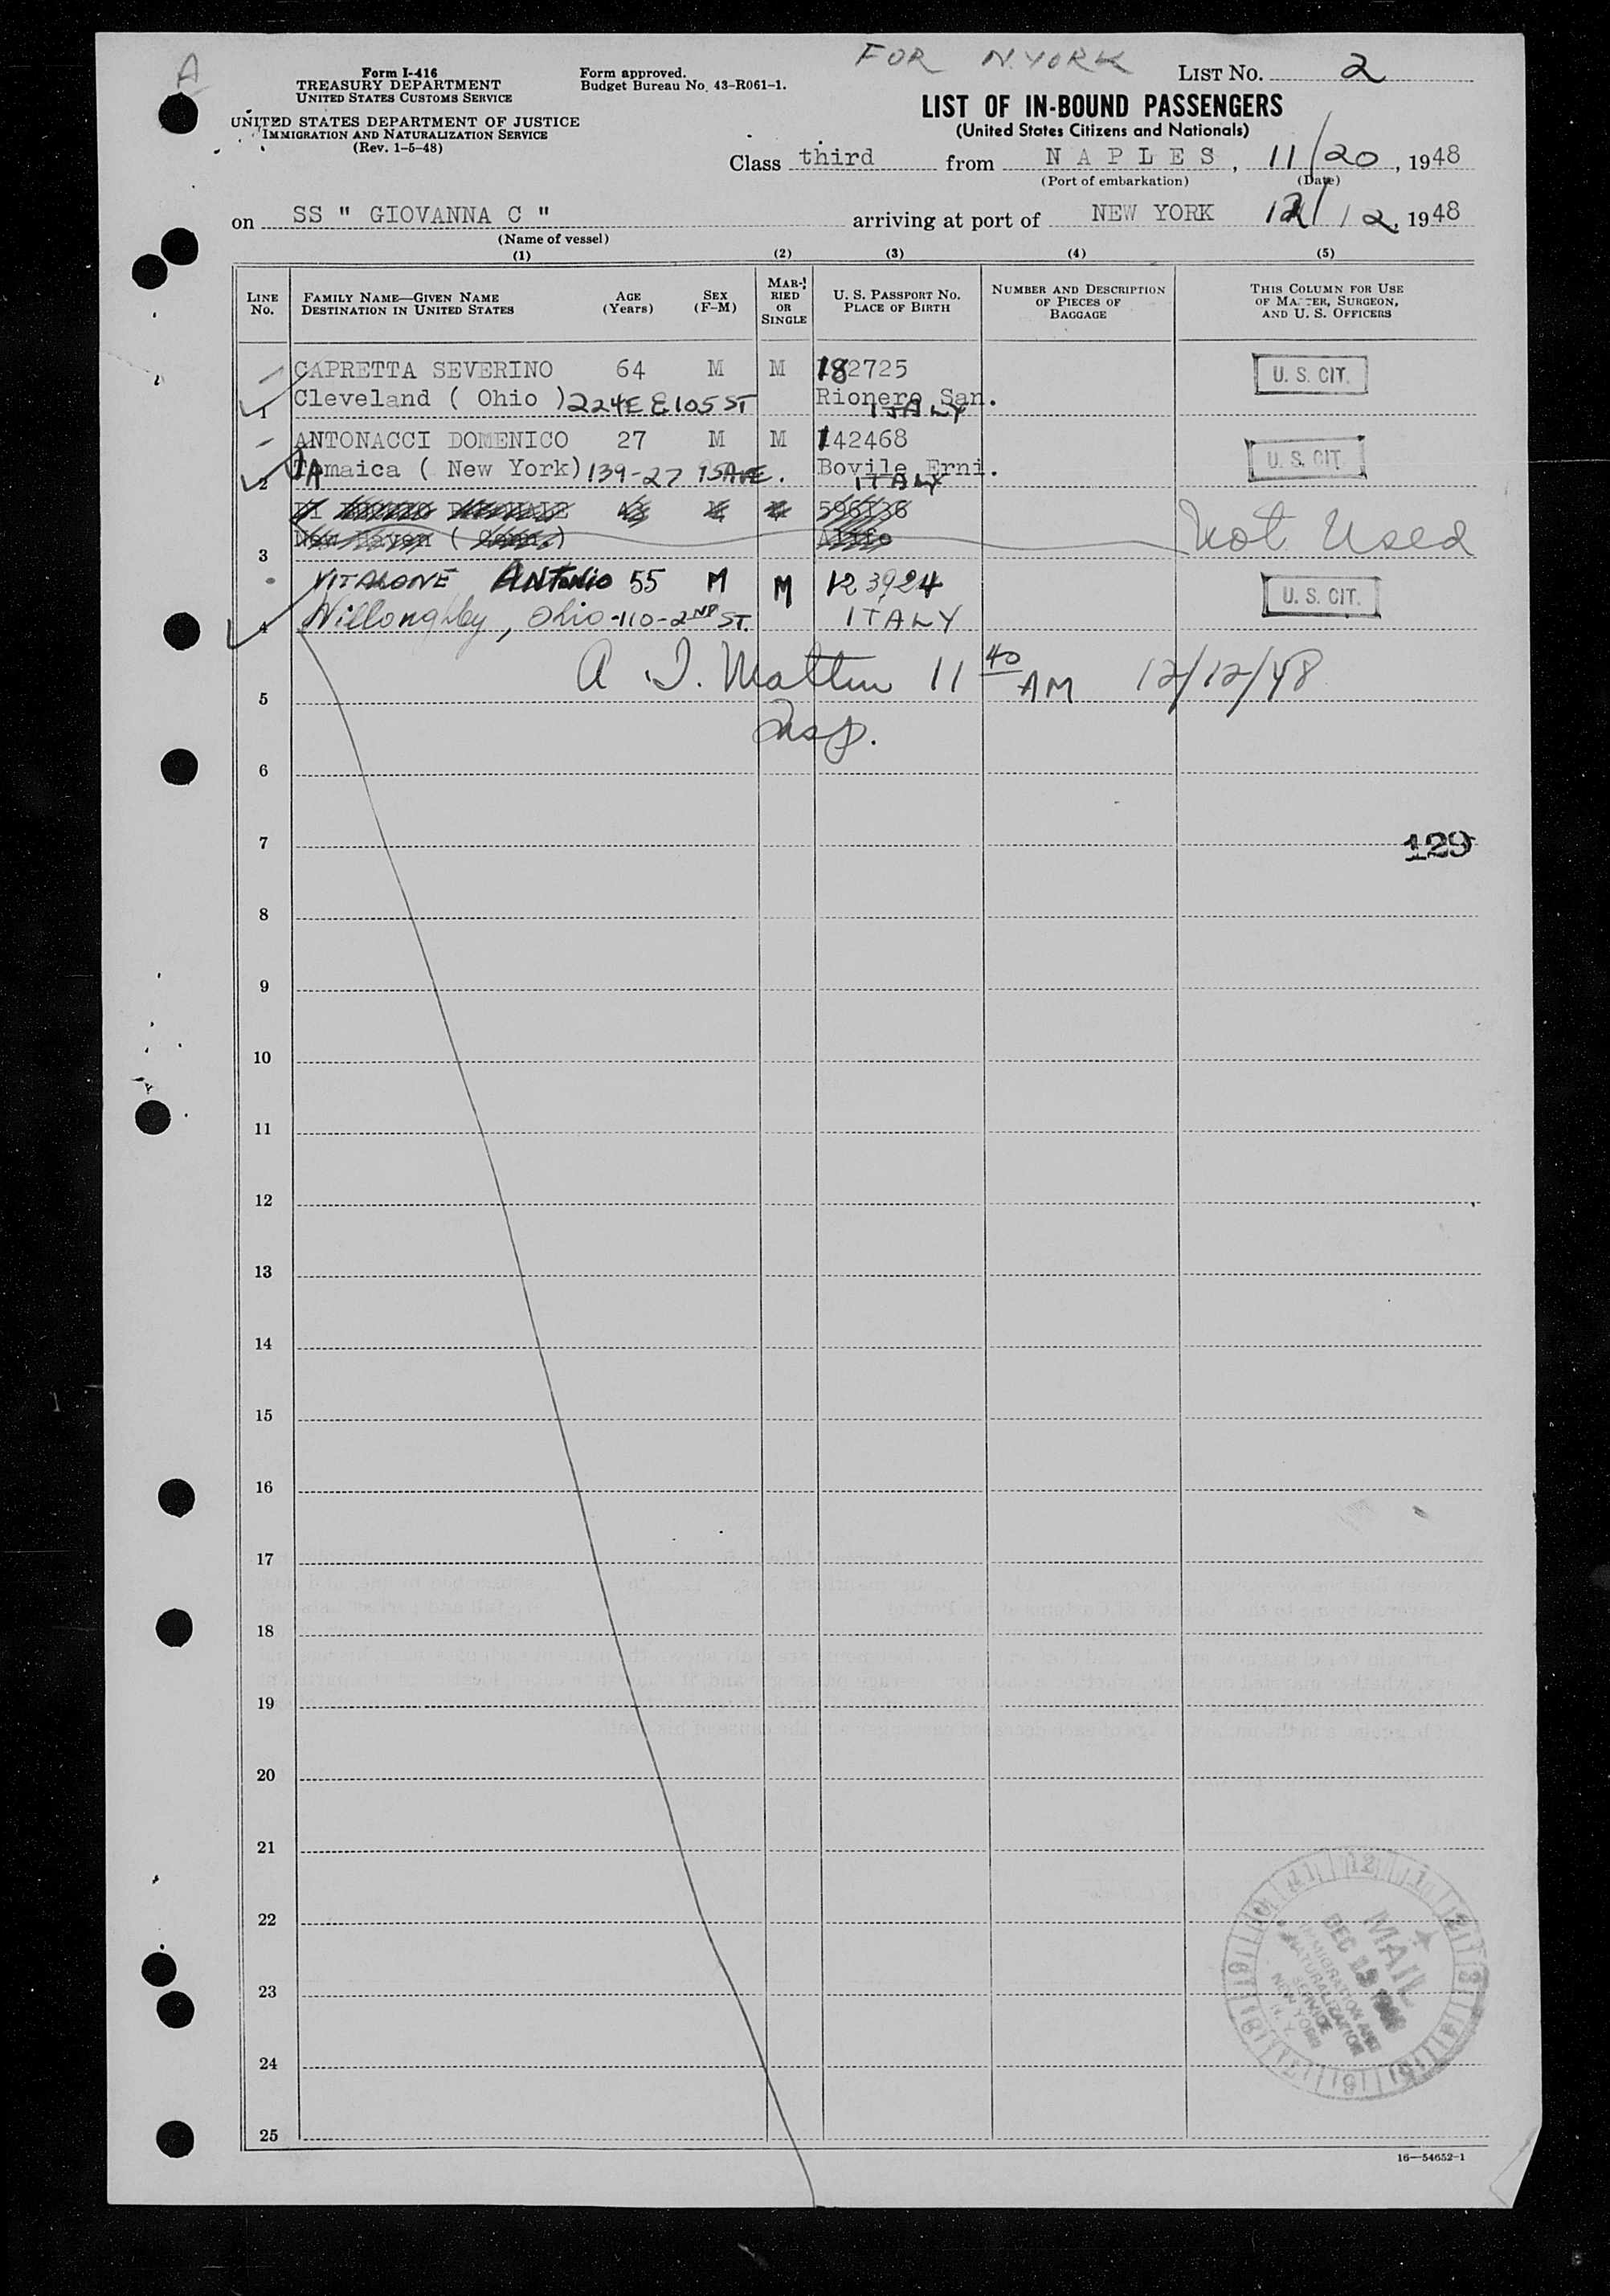 A
FOR N.YORK
Form I-416
TREASURY DEPARTMENT
UNITED STATES CUSTOMS SERVICE
UNITED STATES DEPARTMENT OF JUSTICE
IMMIGRATION AND NATURALIZATION SERVICE
(Rev. 1-5-48)
Form approved.
Budget Bureau No. 43-R061-1.
LIST NO. 2
LIST OF IN-BOUND PASSENGERS
(United States Citizens and Nationals)
Class third from N A P L E S , 11/20, 1948
(Port of embarkation) (Date)
on SS " GIOVANNA C " arriving at port of NEW YORK 12/12, 1948
(Name of vessel)
(1) (2) (3) (4) (5)
LINE No.
FAMILY NAME—GIVEN NAME
DESTINATION IN UNITED STATES
AGE (Years)
SEX (F-M)
MARRIED OR SINGLE
U. S. PASSPORT NO.
PLACE OF BIRTH
NUMBER AND DESCRIPTION OF PIECES OF BAGGAGE
THIS COLUMN FOR USE OF MASTER, SURGEON, AND U. S. OFFICERS
CAPRETTA SEVERINO 64 M M 182725 U. S. CIT.
1 Cleveland ( Ohio ) 224E E105 ST Rionero San. ITALY
ANTONACCI DOMENICO 27 M M 142468 U. S. CIT.
2 Jamaica ( New York) 139-27 Bovile Erni. ITALY
DI 43 596136 Not Used
3 New Haven ( Conn.) Alife
VITALONE ANTONIO 55 M M 123924 U. S. CIT.
4 Willoughby, Ohio-110-2ND ST. ITALY
A 11 40 AM 12/12/48
5
Insp.
6
7 129
8
9
10
11
12
13
14
15
16
17
18
19
20
21
22
23
24
25
MAIL
DEC 1948
IMMIGRATION AND
NATURALIZATION
SERVICE
NEW YORK
N. Y.
16—54652-1